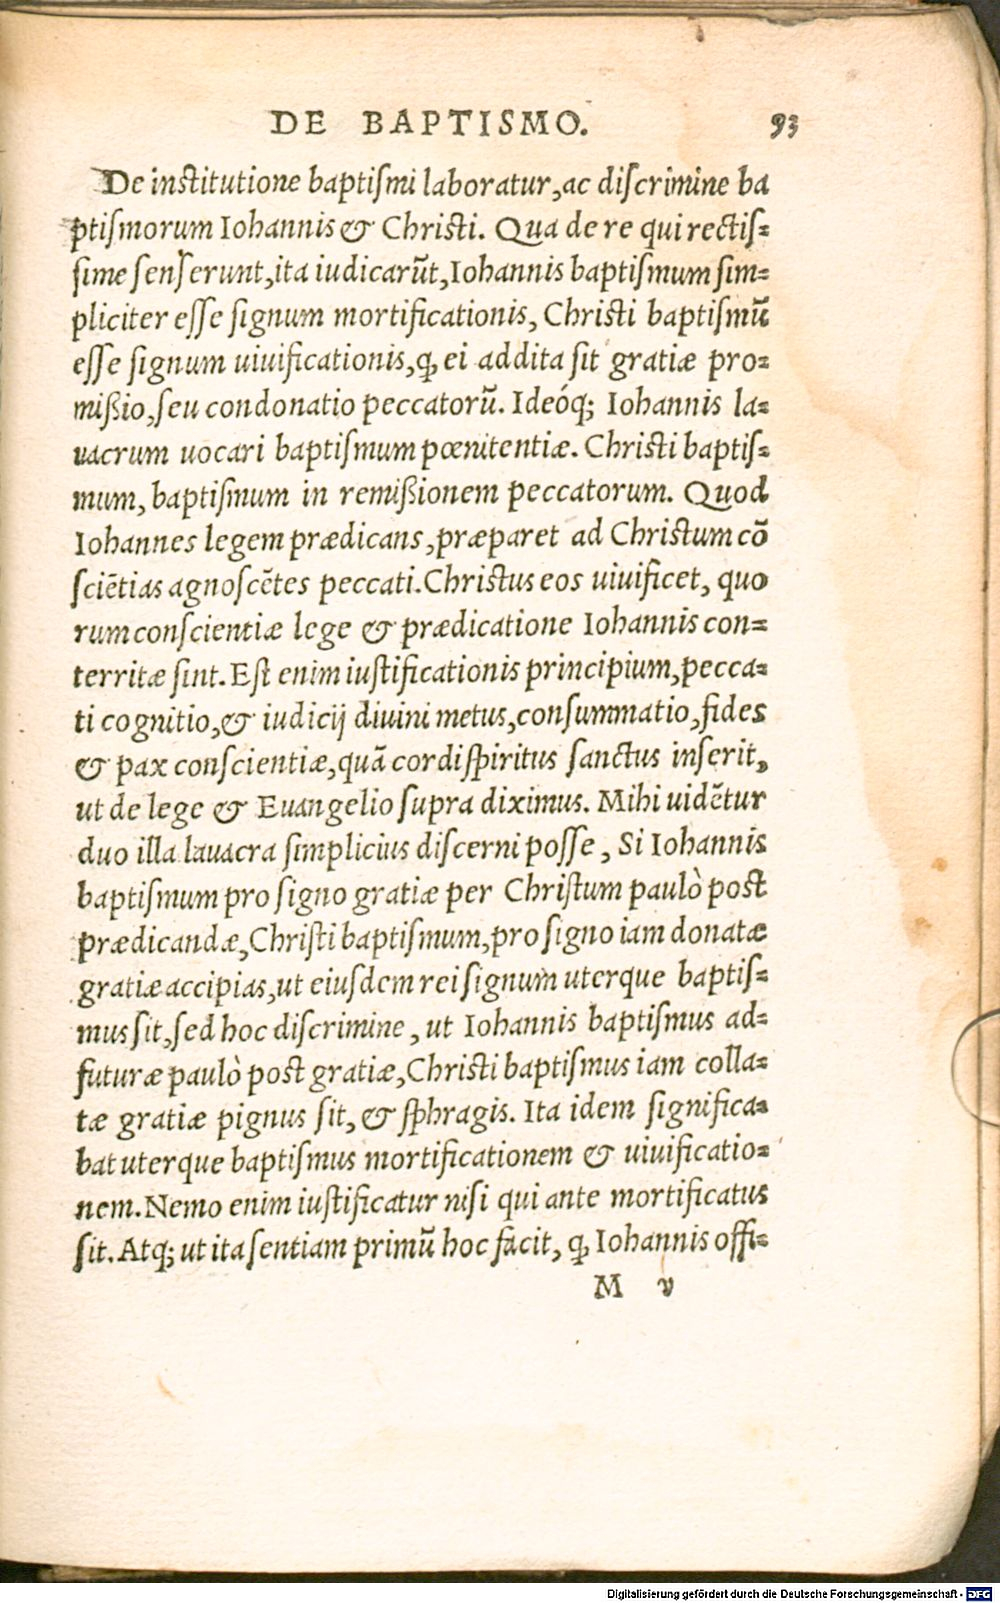 DE BAPTISMO. 93
De institutione baptiſmi laboratur, ac diſcrimine ba
ptiſmorum Iohannis & Christi. Qua de re qui rectiſ⸗
ſime ſenſerunt, ita iudicarũt, Iohannis baptiſmum ſim⸗
pliciter eſſe ſignum mortificationis, Christi baptiſmũ
eſſe ſignum uiuificationis, ꝙ ei addita ſit gratiæ pro⸗
mißio, ſeu condonatio peccatorũ. Ideóq; Iohannis la⸗
uacrum uocari baptiſmum pœnitentiæ. Christi baptiſ⸗
mum, baptiſmum in remißionem peccatorum. Quod
Iohannes legem prædicans, præparet ad Christum cõ
ſciẽtias agnoſcẽtes peccati. Christus eos uiuificet, quo
rum conſcientiæ lege & prædicatione Iohannis con⸗
territæ ſint. Eſt enim iuſtificationis principium, pecca⸗
ti cognitio, & iudicij diuini metus, conſummatio, fides
& pax conſcientiæ, quã cordi ſpiritus ſanctus inſerit,
ut de lege & Euangelio ſupra diximus. Mihi uidẽtur
duo illa lauacra ſimplicius diſcerni poſſe, Si Iohannis
baptiſmum pro ſigno gratiæ per Chriſtum paulò post
prædicandæ, Christi baptiſmum, pro ſigno iam donatæ
gratiæ accipias, ut eiuſdem rei ſignum uterque baptiſ⸗
mus ſit, ſed hoc diſcrimine, ut Iohannis baptiſmus ad⸗
futuræ paulò post gratiæ, Christi baptiſmus iam colla⸗
tæ gratiæ pignus ſit, & ſphragis. Ita idem ſignifica⸗
bat uterque baptiſmus mortificationem & uiuificatio⸗
nem. Nemo enim iuſtificatur niſi qui ante mortificatus
ſit. Atq; ut ita ſentiam primũ hoc facit, ꝙ Iohannis offi⸗
M v
Digitalisierung gefördert durch die Deutsche Forschungsgemeinschaft - DFG